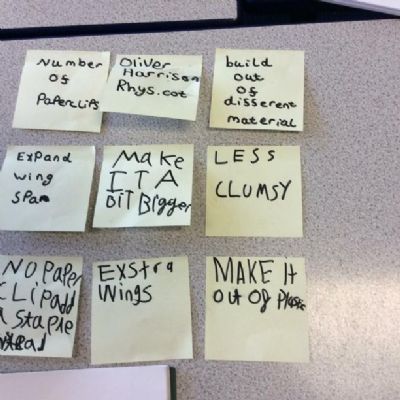 Number
Of
Paperclips
Oliver
Harrison
Rhys.cot
build
out
of
disserent
material
Expand
wing
span
Make
IT A
BiT Bigger
LESS
CLUMSY
NO Paper
CLip add
a Staple
Exstra
Wings
MAKE It
out Of Plastic